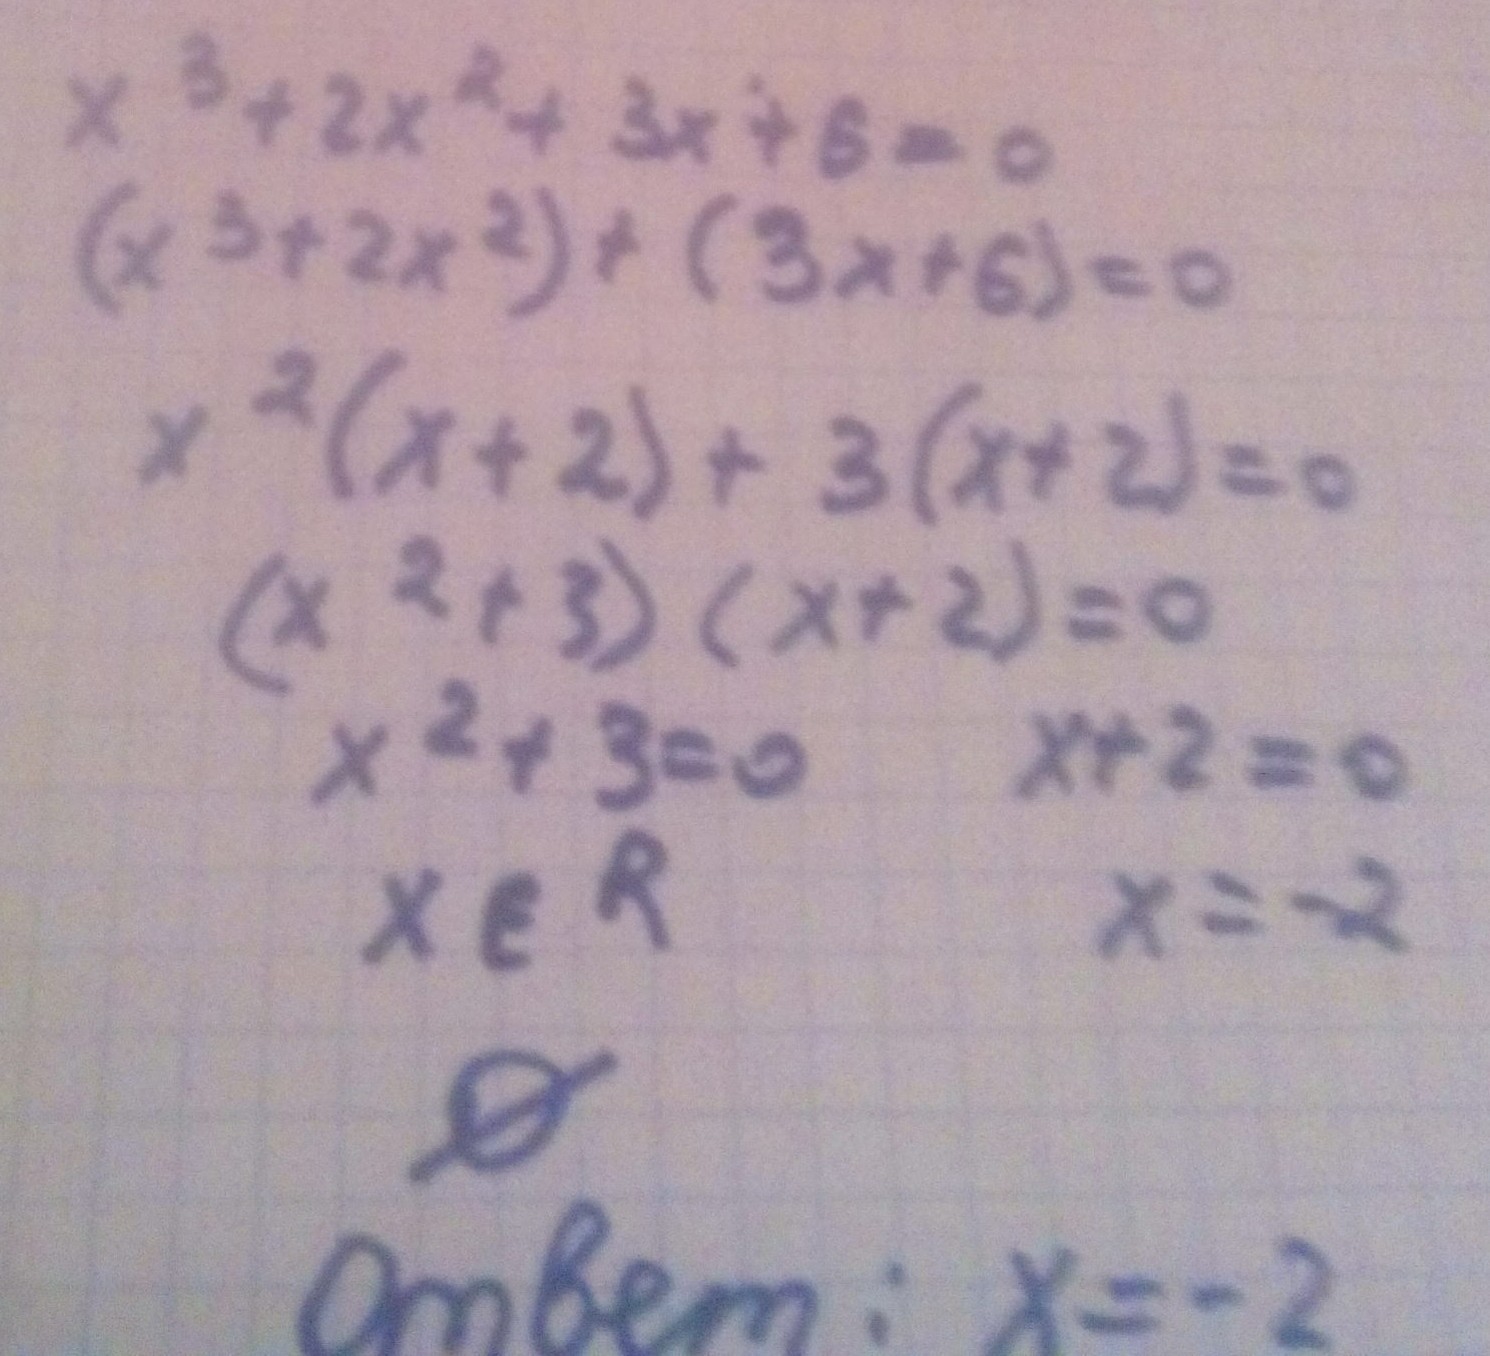 x³+2x²+3x+6=0
(x³+2x²)+(3x+6)=0
x²(x+2)+3(x+2)=0
(x²+3)(x+2)=0
x²+3=0 x+2=0
x∈R x=-2
∅
Ответ: x=-2